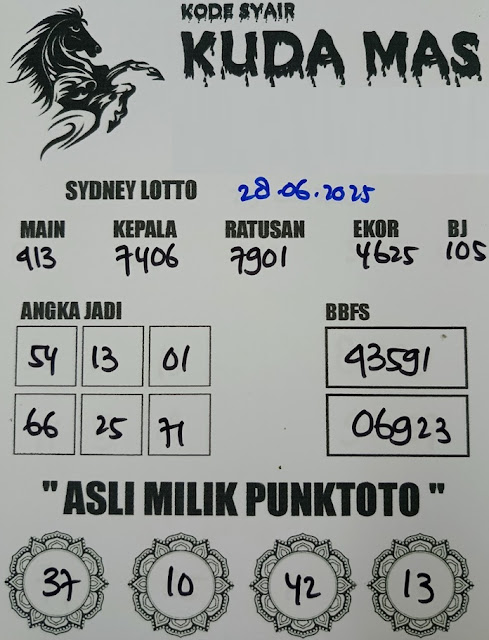 KODE SYAIR
KUDA MAS
SYDNEY LOTTO 28.06.2025
MAIN KEPALA RATUSAN EKOR BJ
913 7406 7901 4625 105
ANGKA JADI BBFS
54 13 01 93591
66 25 71 06923
" ASLI MILIK PUNKTOTO "
37 10 42 13